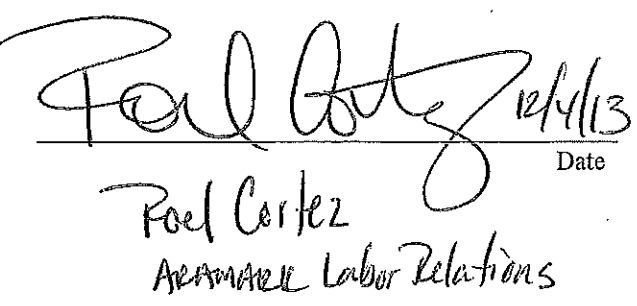 Roel Cortez 12/4/13
Date
Roel Cortez
ARAMARK Labor Relations